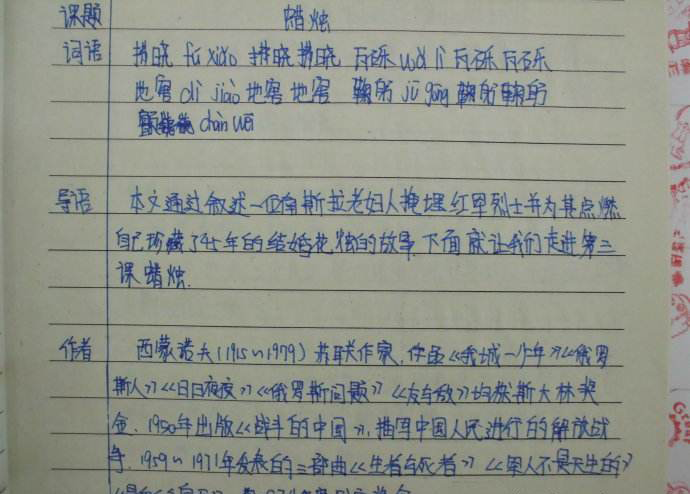 课题 蜡烛
词语 拂晓 fú xiǎo 拂晓 拂晓 瓦砾 wǎ lì 瓦砾 瓦砾
地窖 dì jiào 地窖 地窖 鞠躬 jū gōng 鞠躬 鞠躬
chàn wēi
导语 本文通过叙述一位南斯拉老妇人掩埋红军烈士并为其点燃
自己珍藏了45年的结婚花烛的故事.下面就让我们走进第三
课蜡烛.
作者 西蒙诺夫(1915~1979)苏联作家.作品《我城一少年》《俄罗
斯人》《日日夜夜》《俄罗斯问题》《友与敌》均获斯大林奖
金.1950年出版《战斗的中国》,描写中国人民进行的解放战
争.1959~1971年发表的三部曲《生者与死者》《军人不是天生的》